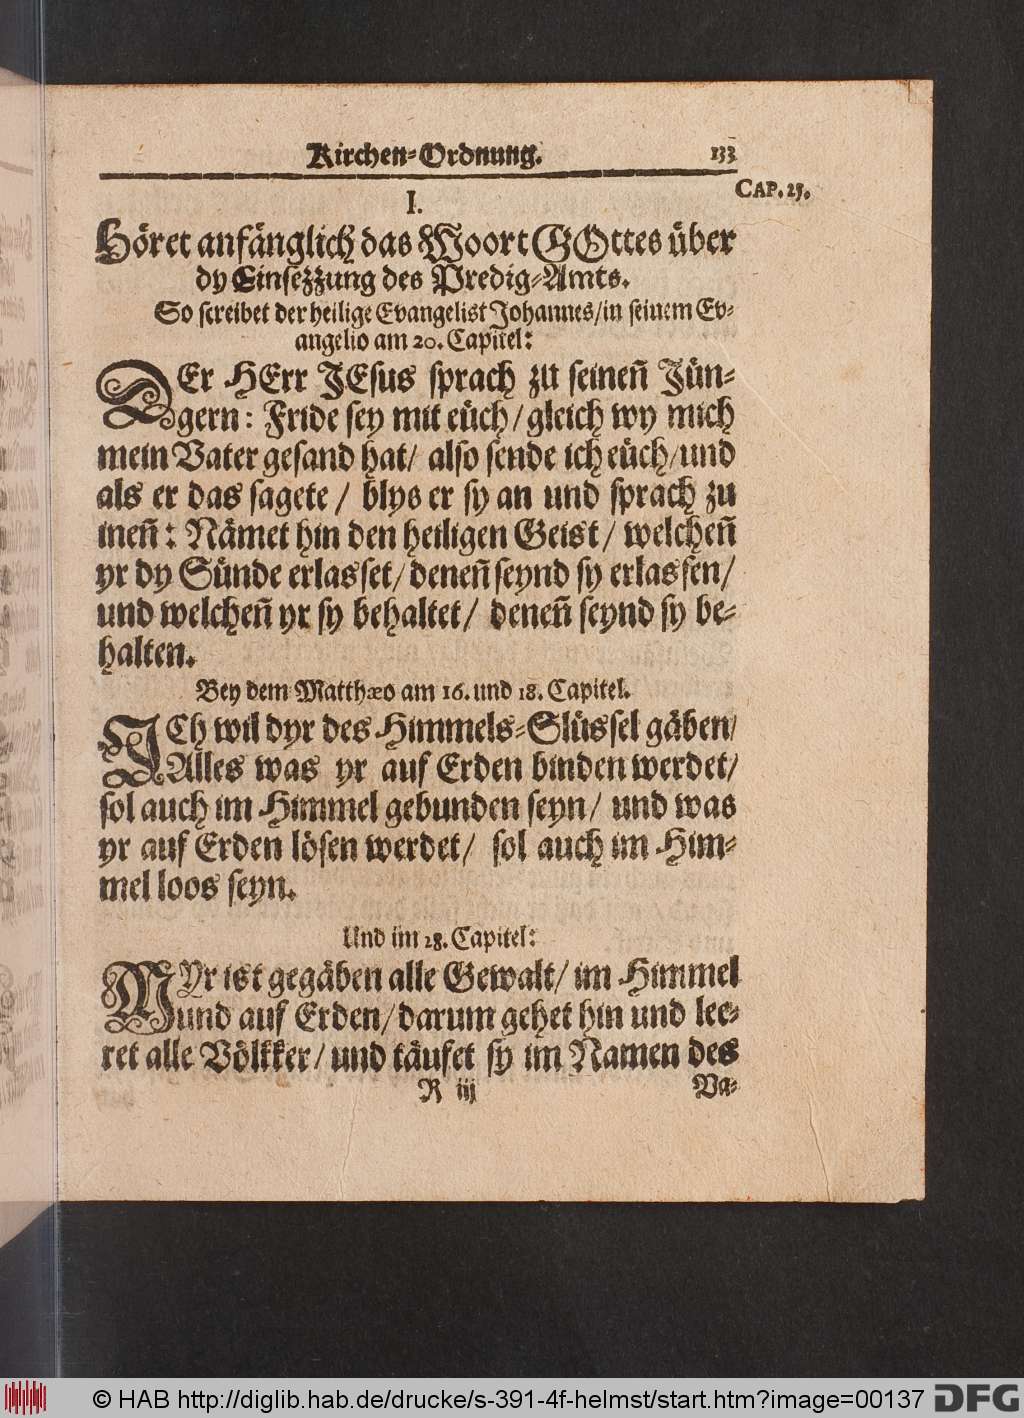 Kirchen-Ordnung. 133
CAP. 25.
I.
Höret anfänglich das Woort GOttes über
dy Einsezzung des Predig-Amts.
So screibet der heilige Evangelist Johannes/in seinem Ev-
angelio am 20. Capitel:
DEr HErr JEsus sprach zu seinen̄ Jün-
gern: Fride sey mit eüch/gleich wy mich
mein Vater gesand hat/ also sende ich eüch/und
als er das sagete/ blys er sy an und sprach zu
inen̄: Nämet hin den heiligen Geist/ welchen̄
yr dy Sünde erlasset/denen̄ seynd sy erlassen/
und welchen̄ yr sy behaltet/ denen̄ seynd sy be-
halten.
Bey dem Matthæo am 16. und 18. Capitel.
JCh wil dyr des Himmels-Slüssel gäben/
Alles was yr auf Erden binden werdet/
sol auch im Himmel gebunden seyn/ und was
yr auf Erden lösen werdet/ sol auch im Him-
mel loos seyn.
Und im 28. Capitel:
MYr ist gegäben alle Gewalt/ im Himmel
und auf Erden/darum gehet hin und lee-
ret alle Völkker/und täufet sy im Namen des
R iij Va-
© HAB http://diglib.hab.de/drucke/s-391-4f-helmst/start.htm?image=00137 DFG